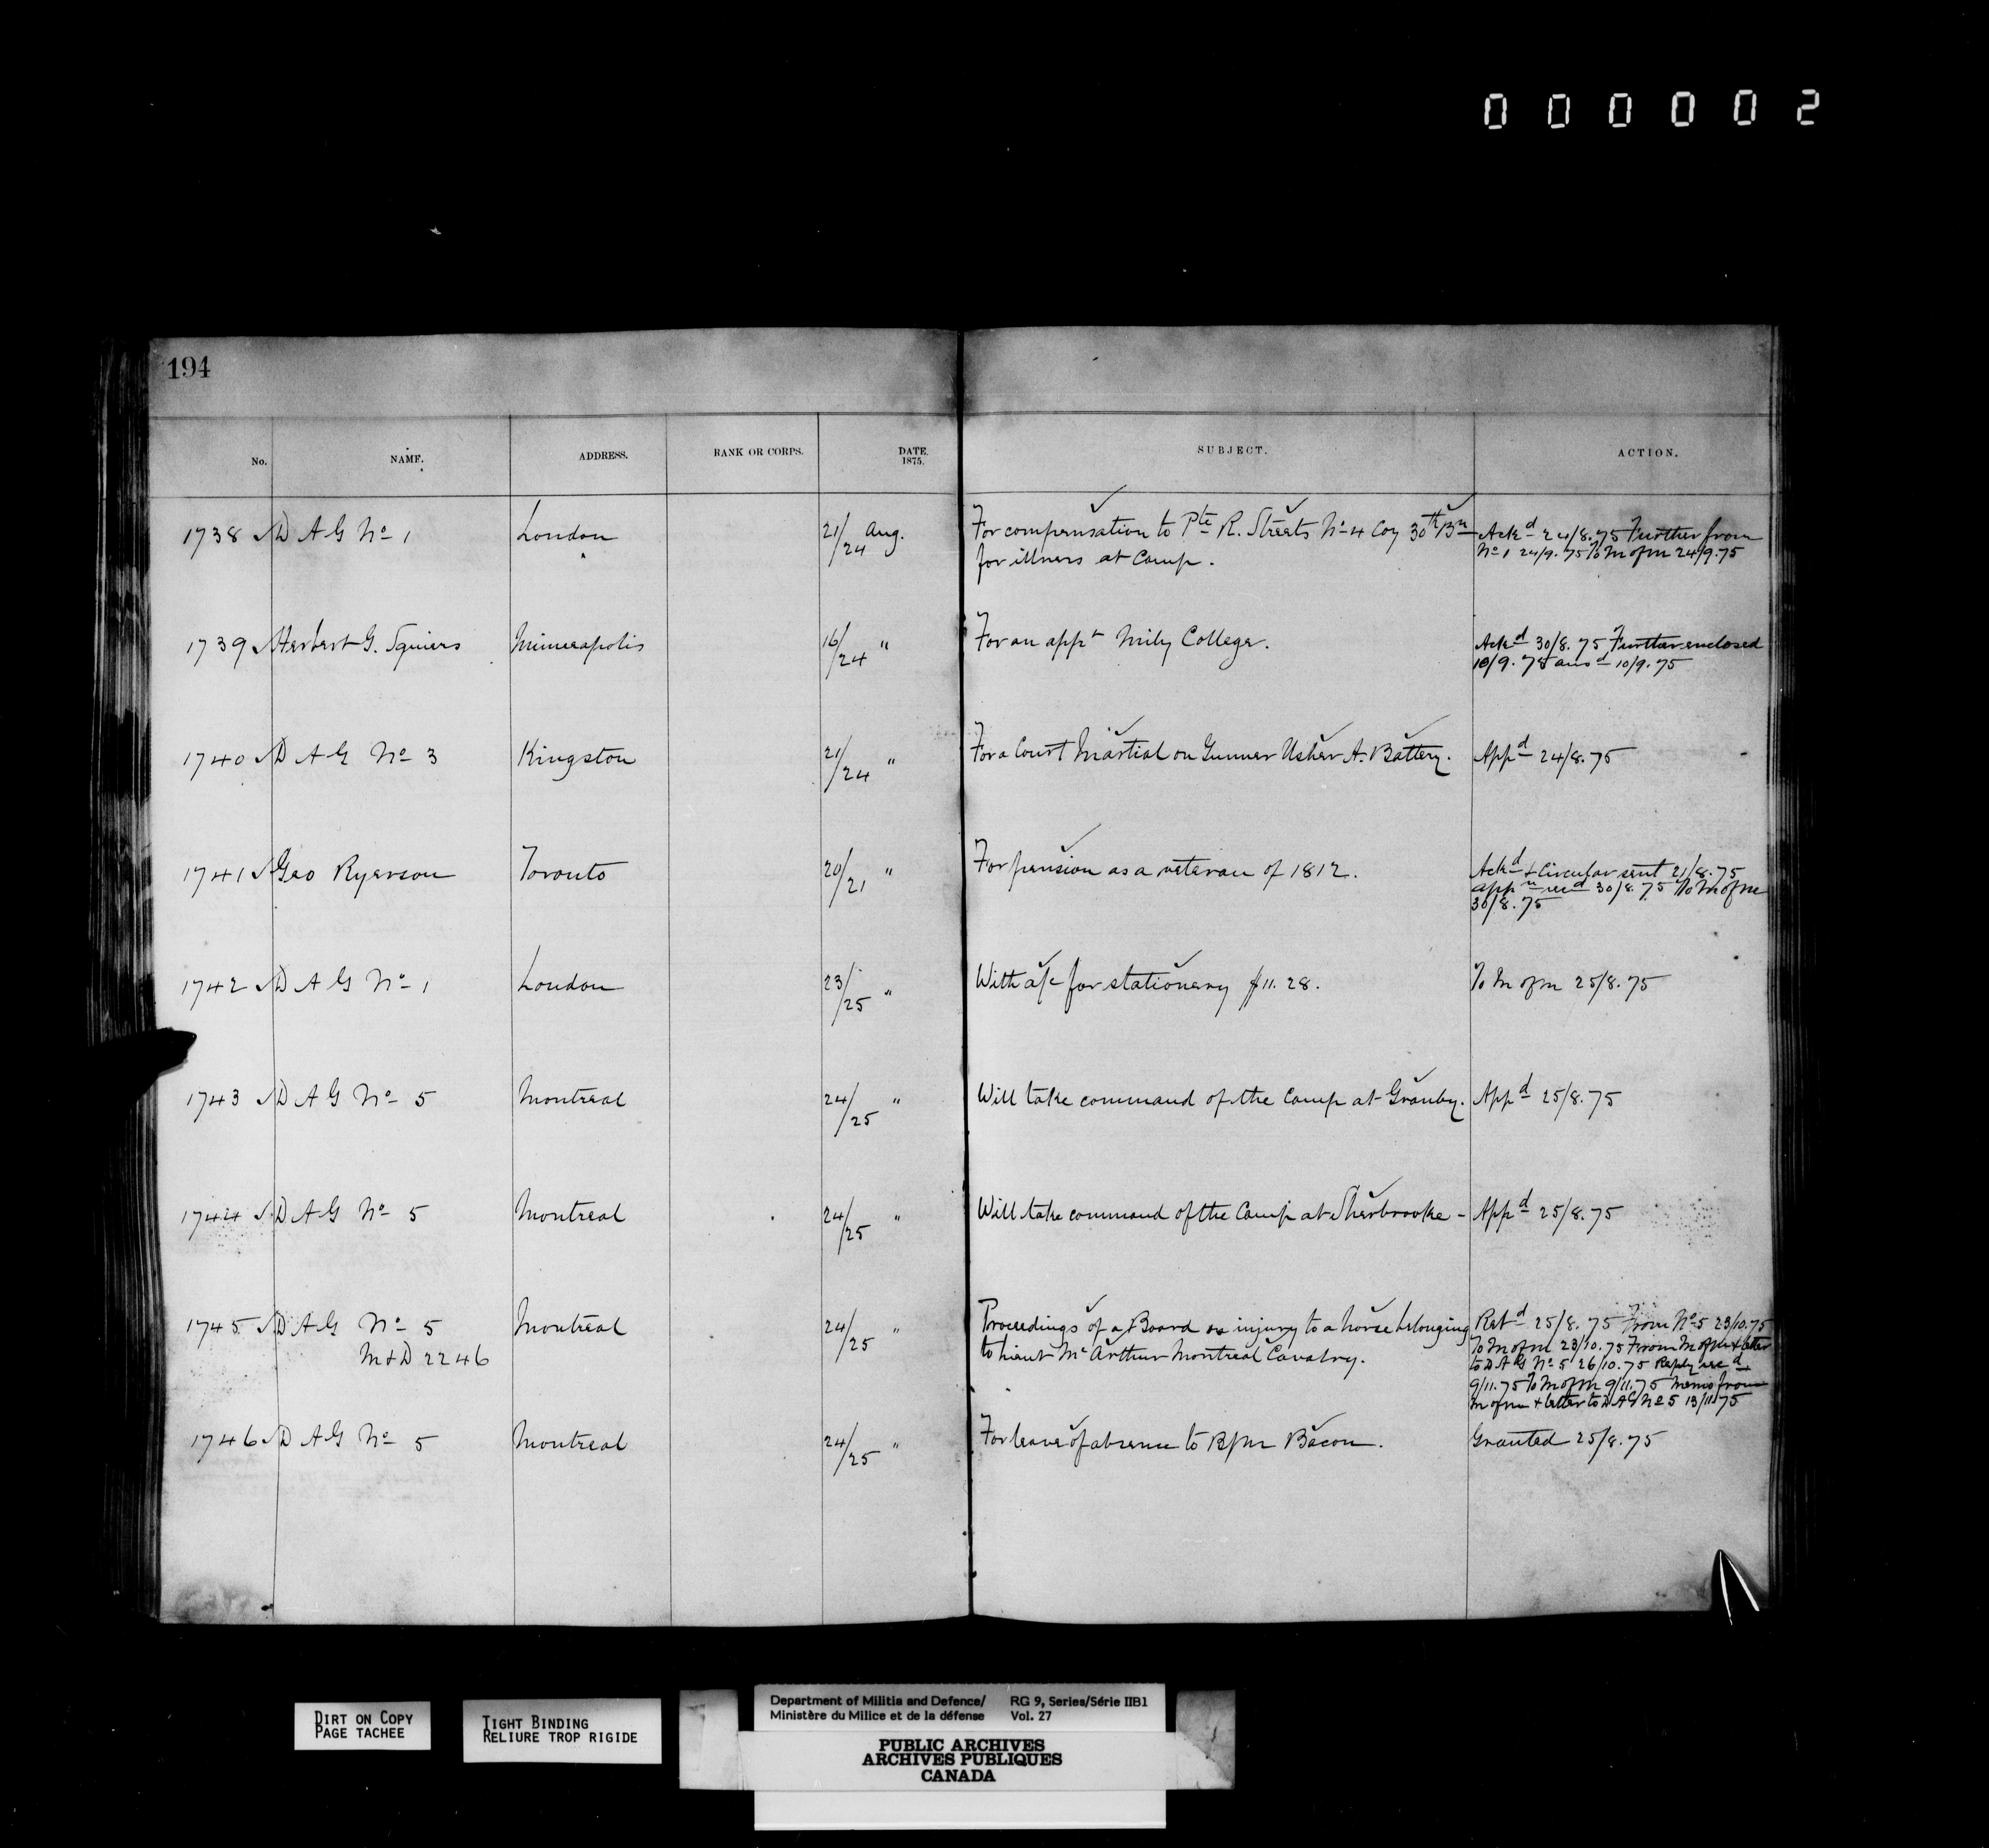 000002
194
No. NAME. ADDRESS. RANK OR CORPS. DATE. 1875. SUBJECT. ACTION.
1738 ✓ D A G No 1 London 21/24 Aug. For compensation to Pte R. Streets No 4 Coy 30th Bn Ackd 24/8.75 Further from
for illness at Camp. No 1 24/9.75 To M of M 24/9.75
1739 ✓ Herbert G. Squiers Minneapolis 16/24 " For an appt Mily College. Ackd 30/8.75 Further enclosed
10/9.75 ansd 10/9.75
1740 ✓ D A G No 3 Kingston 21/24 " For a Court Martial on Gunner Usher A. Battery. Appd 24/8.75
1741 ✓ Geo Ryerson Toronto 20/21 " For pension as a veteran of 1812. Ackd & Circular sent 21/8.75
appn recd 30/8.75 To M of M
30/8.75
1742 ✓ D A G No 1 London 23/25 " With a/c for stationery $11.28. To M of M 25/8.75
1743 ✓ D A G No 5 Montreal 24/25 " Will take command of the Camp at Granby. Appd 25/8.75
1744 ✓ D A G No 5 Montreal 24/25 " Will take command of the Camp at Sherbrooke - Appd 25/8.75
1745 ✓ D A G No 5 Montreal 24/25 " Proceedings of a Board on injury to a horse belonging Retd 25/8.75 From No 5 23/10.75
M & D 2246 to Lieut McArthur Montreal Cavalry. To M of M 23/10.75 From M of M & letter
to D A G No 5 26/10.75 Reply recd
9/11.75 To M of M 9/11.75 Memo from
M of M & letter to D A G No 5 13/11.75
1746 ✓ D A G No 5 Montreal 24/25 " For leave of absence to B/M Bacon. Granted 25/8.75
DIRT ON COPY
PAGE TACHEE
TIGHT BINDING
RELIURE TROP RIGIDE
Department of Militia and Defence/ RG 9, Series/Série IIB1
Ministère du Milice et de la défense Vol. 27
PUBLIC ARCHIVES
ARCHIVES PUBLIQUES
CANADA